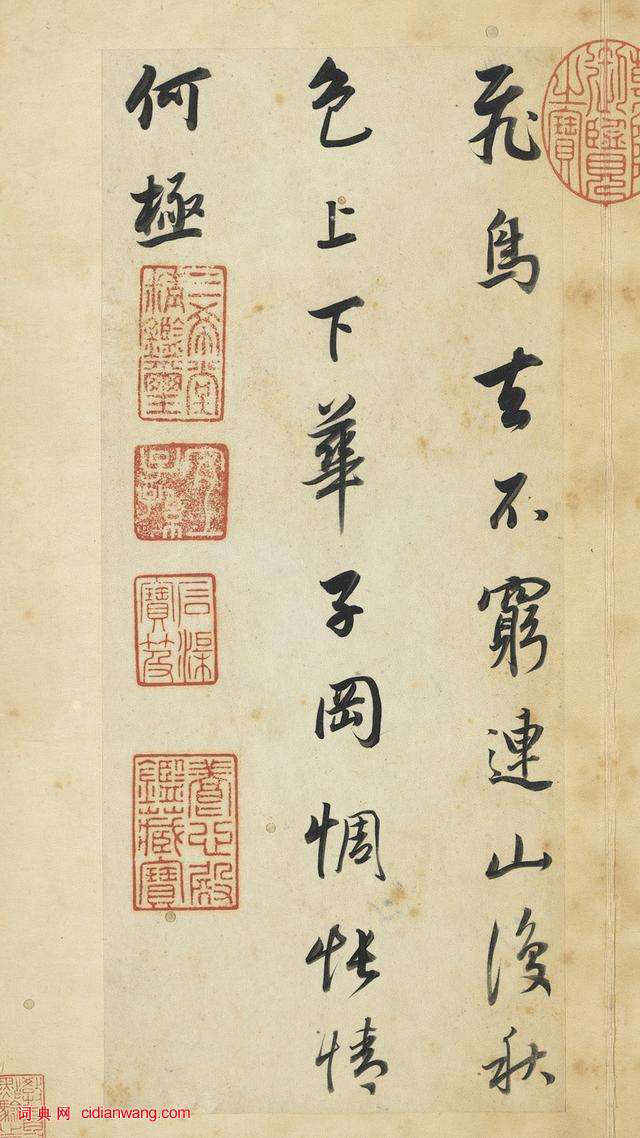 飛鳥去不窮連山復秋
色上下華子岡惆悵情
何極
三希堂精鑑璽
宜子孫
養心殿鑑藏寶
詞典网 cidianwang.com